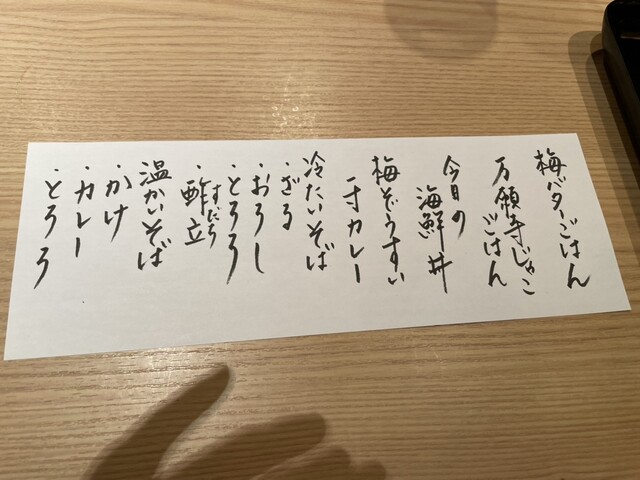 梅バターごはん
万願寺じゃこ
ごはん
今日の
海鮮丼
梅ぞうすい
一寸カレー
冷たいそば
・ざる
・おろし
・とろろ
すだち
・酢立
温かいそば
・かけ
・カレー
・とろろ